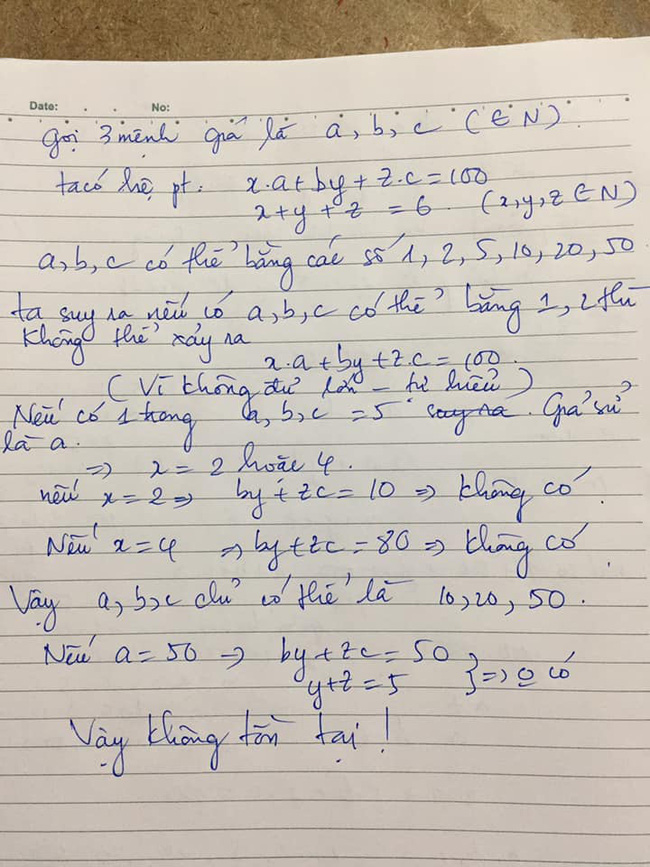 Date: . . No:
Gọi 3 mệnh giá là a, b, c (∈ N)
ta có hệ pt. x.a + by + z.c = 100
x + y + z = 6 (x, y, z ∈ N)
a, b, c có thể bằng các số 1, 2, 5, 10, 20, 50
ta suy ra nếu có a, b, c có thể bằng 1, 2 thì
không thể xảy ra
x.a + by + z.c = 100.
(Vì không đủ lớn – tự hiểu)
Nếu có 1 trong a, b, c = 5 suy ra. Giả sử
là a.
=> x = 2 hoặc 4.
nếu x = 2 => by + zc = 10 => không có
Nếu x = 4 => by + zc = 80 => không có
Vậy a, b, c chỉ có thể là 10, 20, 50.
Nếu a = 50 -> by + zc = 50
y + z = 5 } => o có
Vậy không tồn tại!